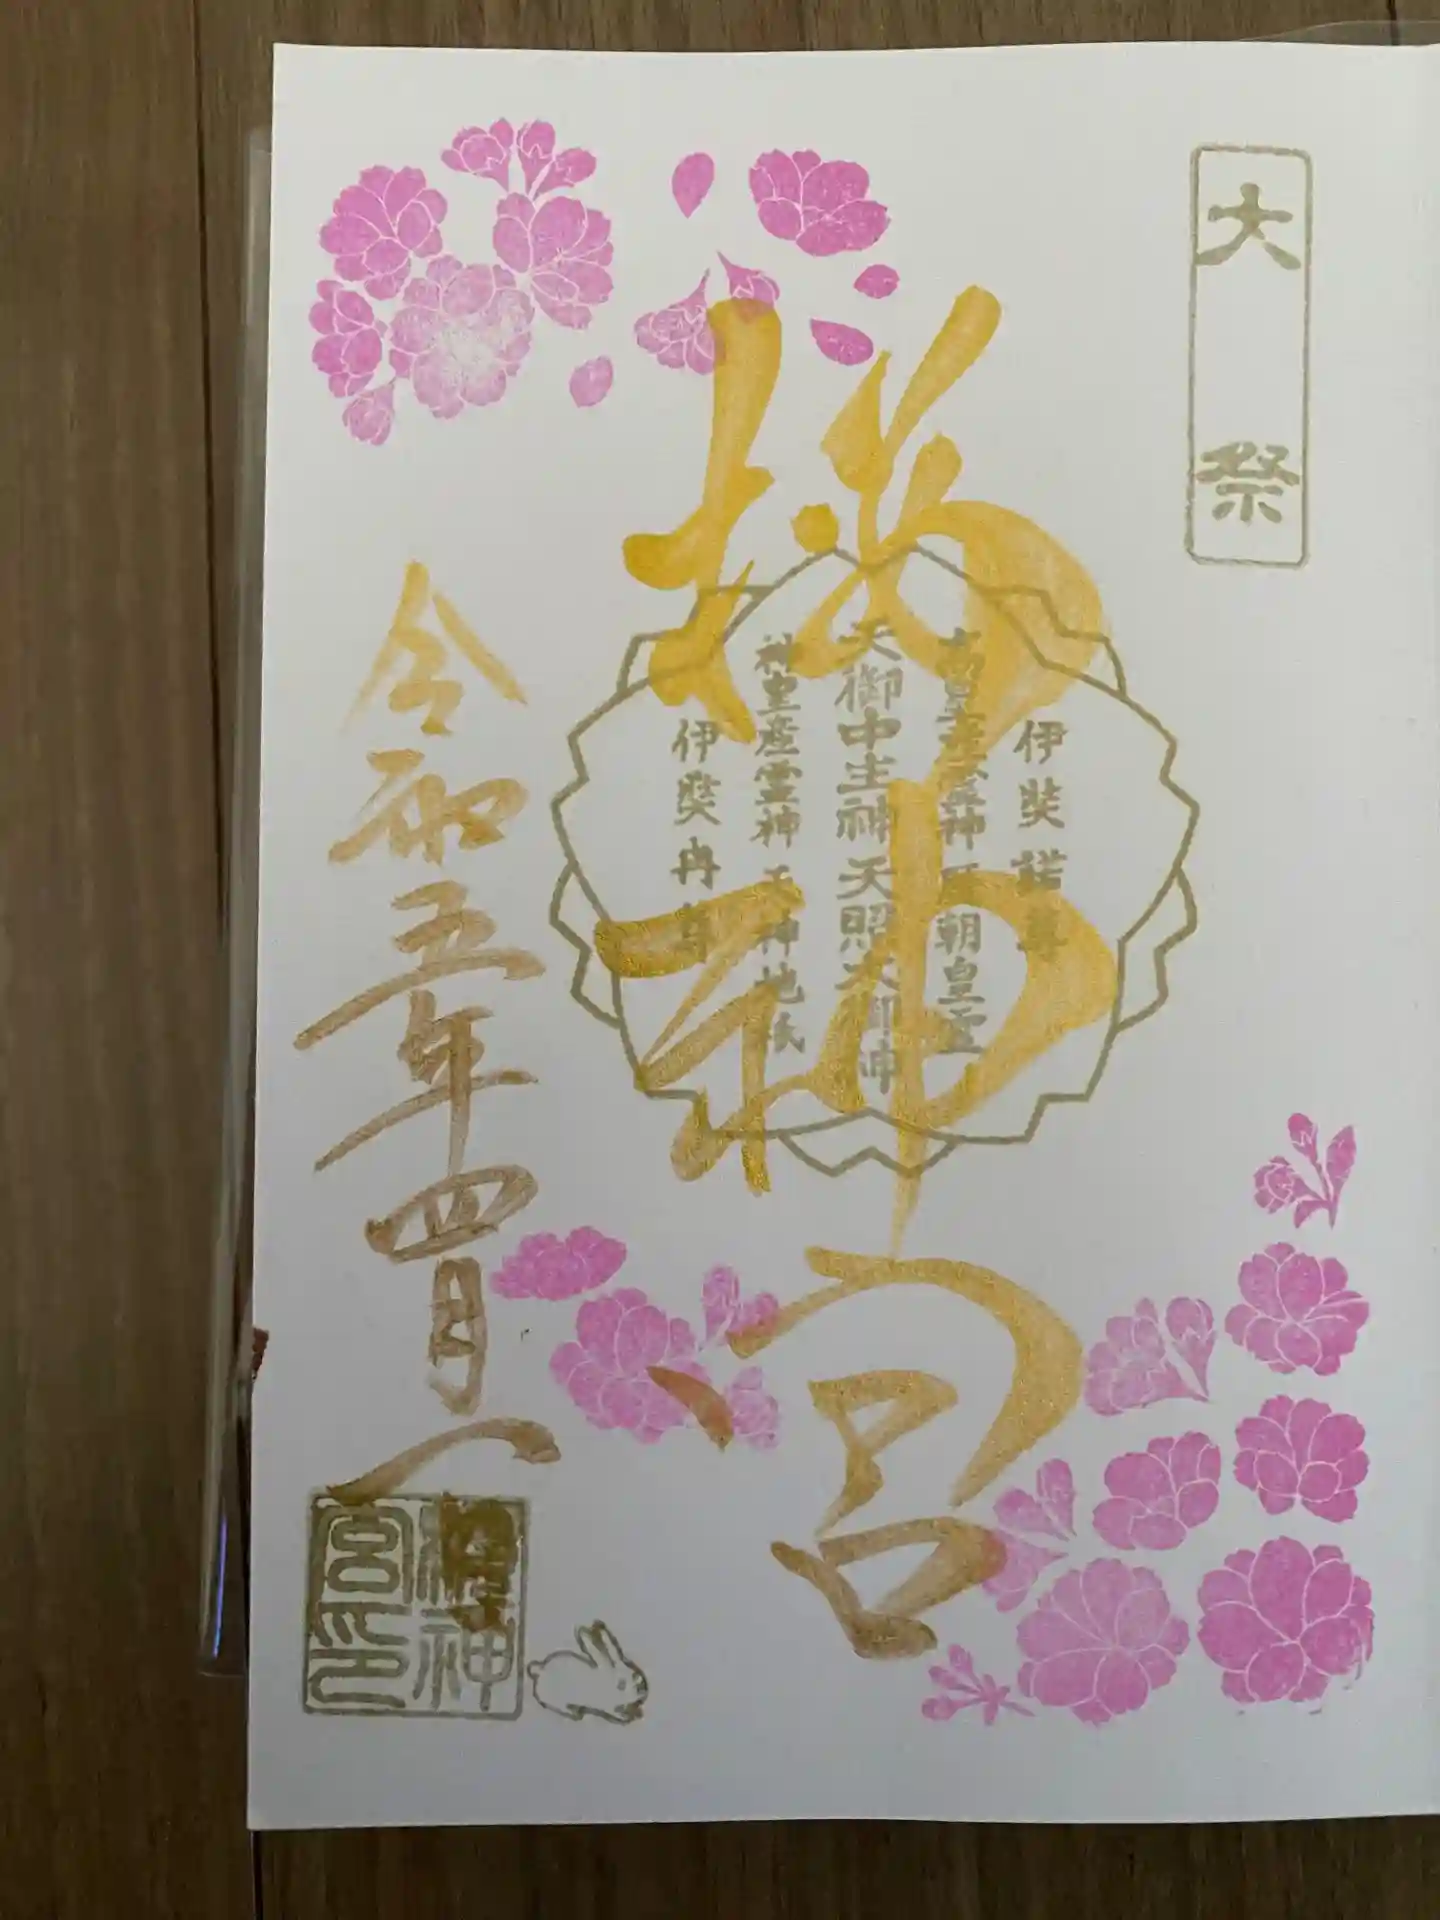 大祭
桜神宮
伊奘諾尊
高皇産霊神 歴朝皇霊
天御中主神 天照大御神
神皇産霊神 天神地祇
伊奘冉尊
令和五年四月
神
宮印